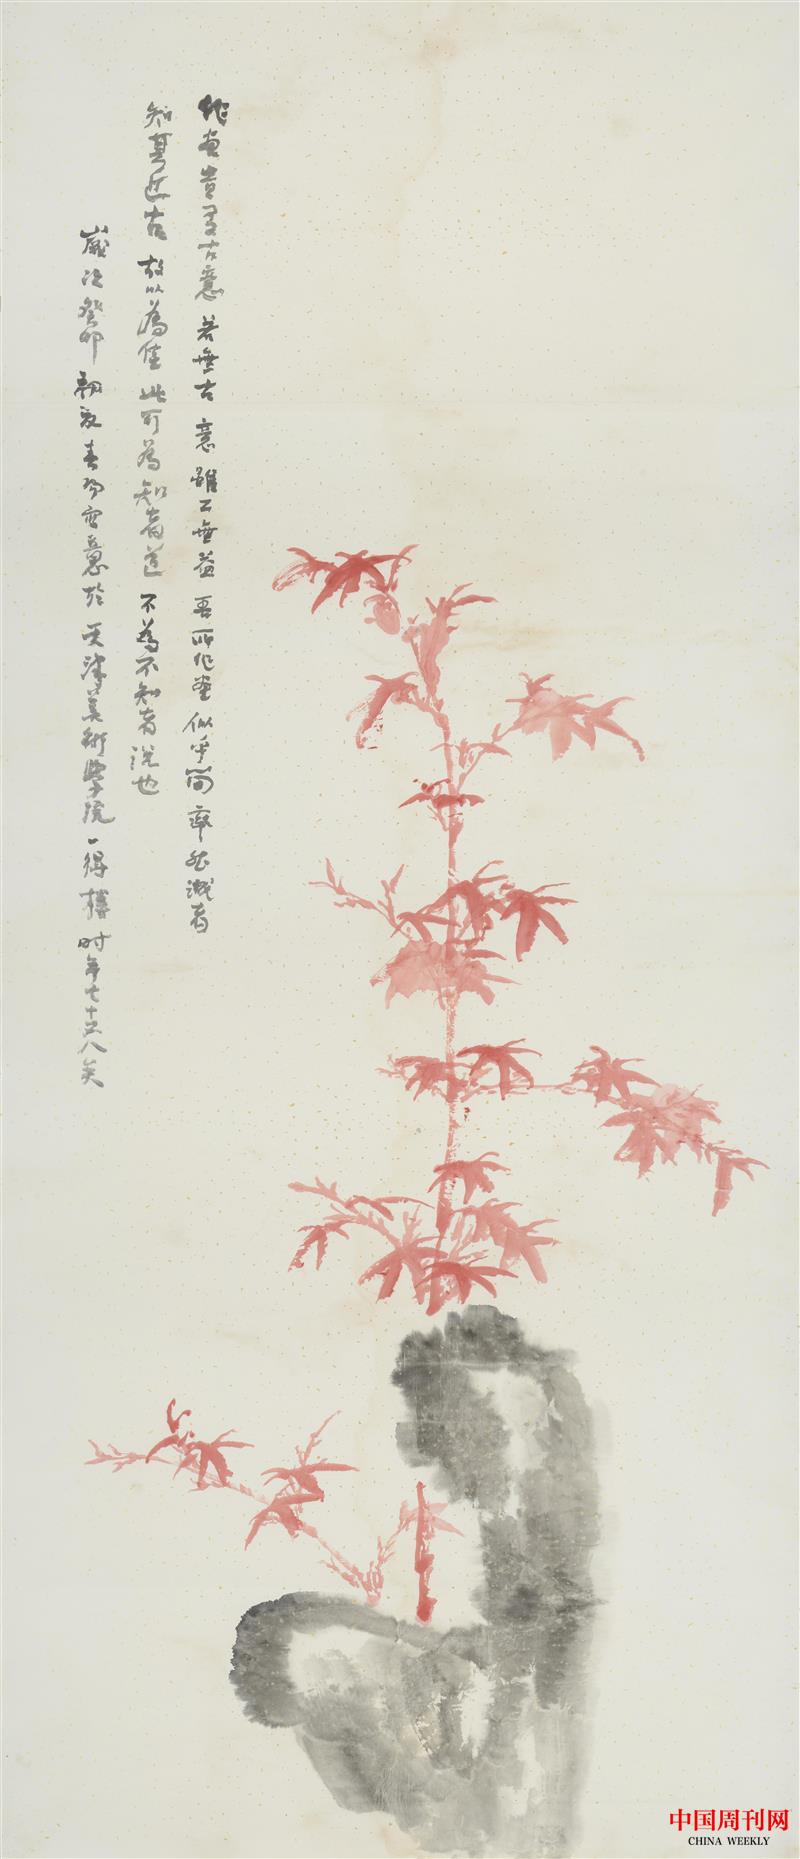 作画贵有古意 若無古意 雖工無益 吾所作画 似乎簡率 然識者
知其近古 故以為佳 此可為知者道 不為不知者說也
歲次癸卯 初夏 春陽寫意於天津美術學院一得樓 时年七十八矣
中国周刊网
CHINA WEEKLY